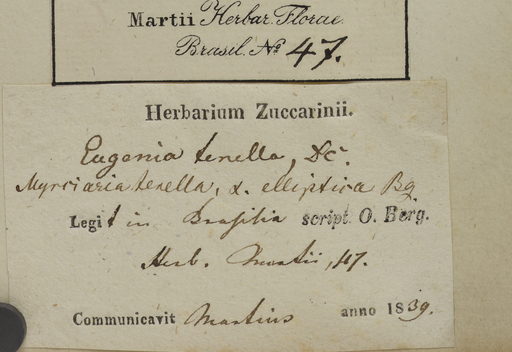 Martii Herbar. Florae
Brasil. No 47.
Herbarium Zuccarinii.
Eugenia tenella, Dc.
Myrciaria tenella, α. elliptica Bg
Legit in Brasilia script. O. Berg.
Herb. Martii, 47.
Communicavit Martius anno 1839.